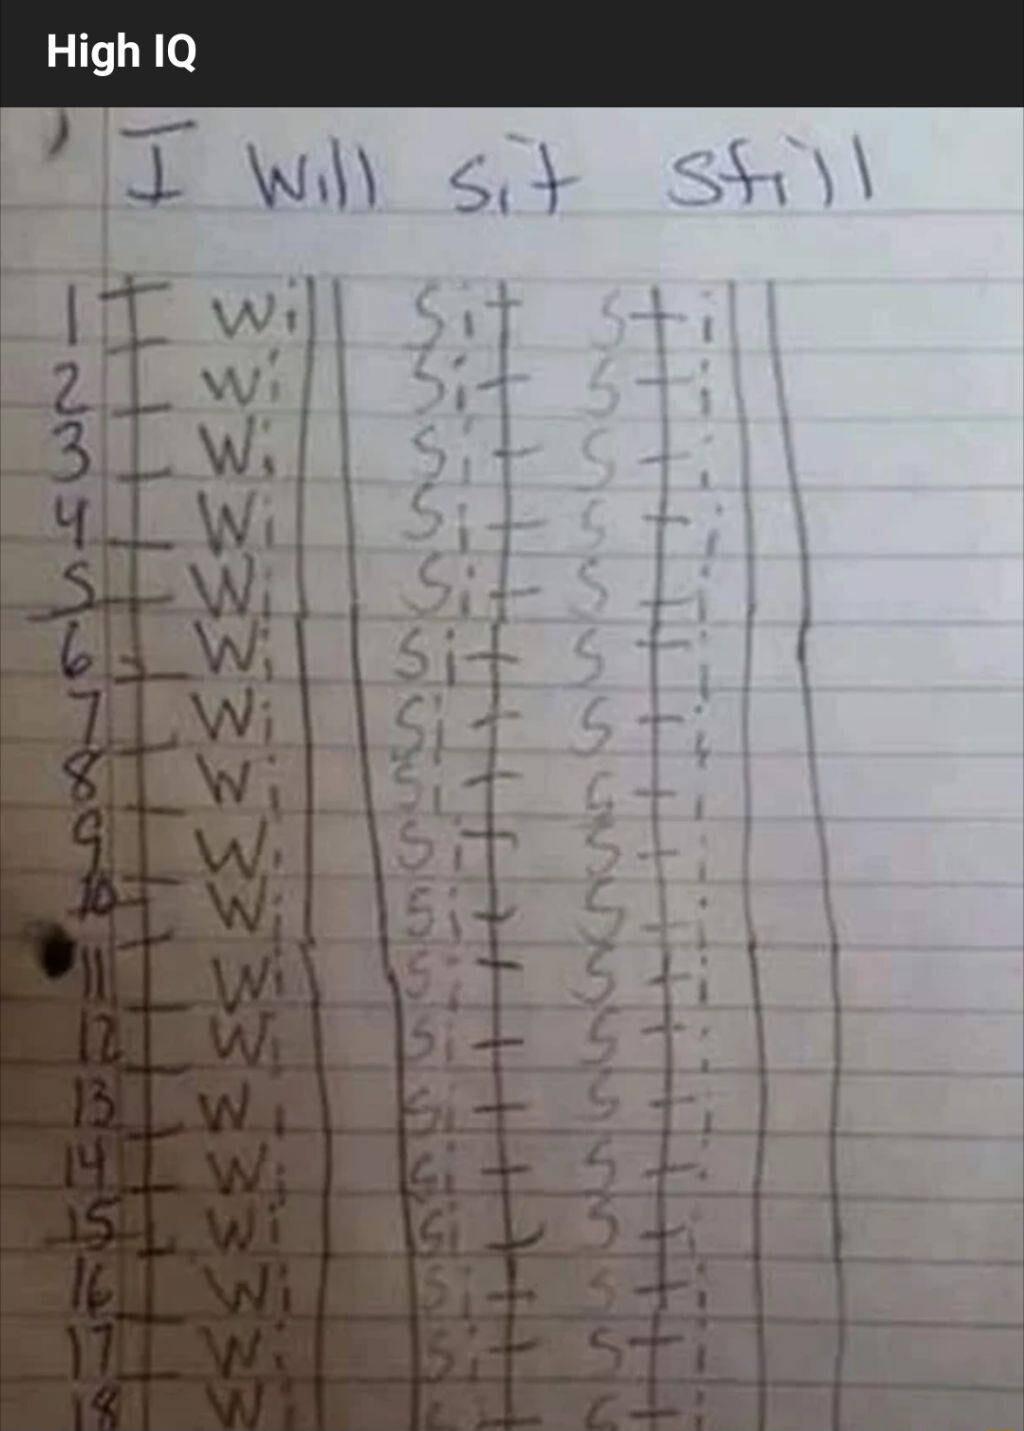 High IQ
I Will sit still
1 I will sit still
2 I will sit still
3 I will sit still
4 I will sit still
5 I will sit still
6 I will sit still
7 I will sit still
8 I will sit still
9 I will sit still
10 I will sit still
11 I will sit still
12 I will sit still
13 I will sit still
14 I will sit still
15 I will sit still
16 I will sit still
17 I will sit still
18 I will sit still